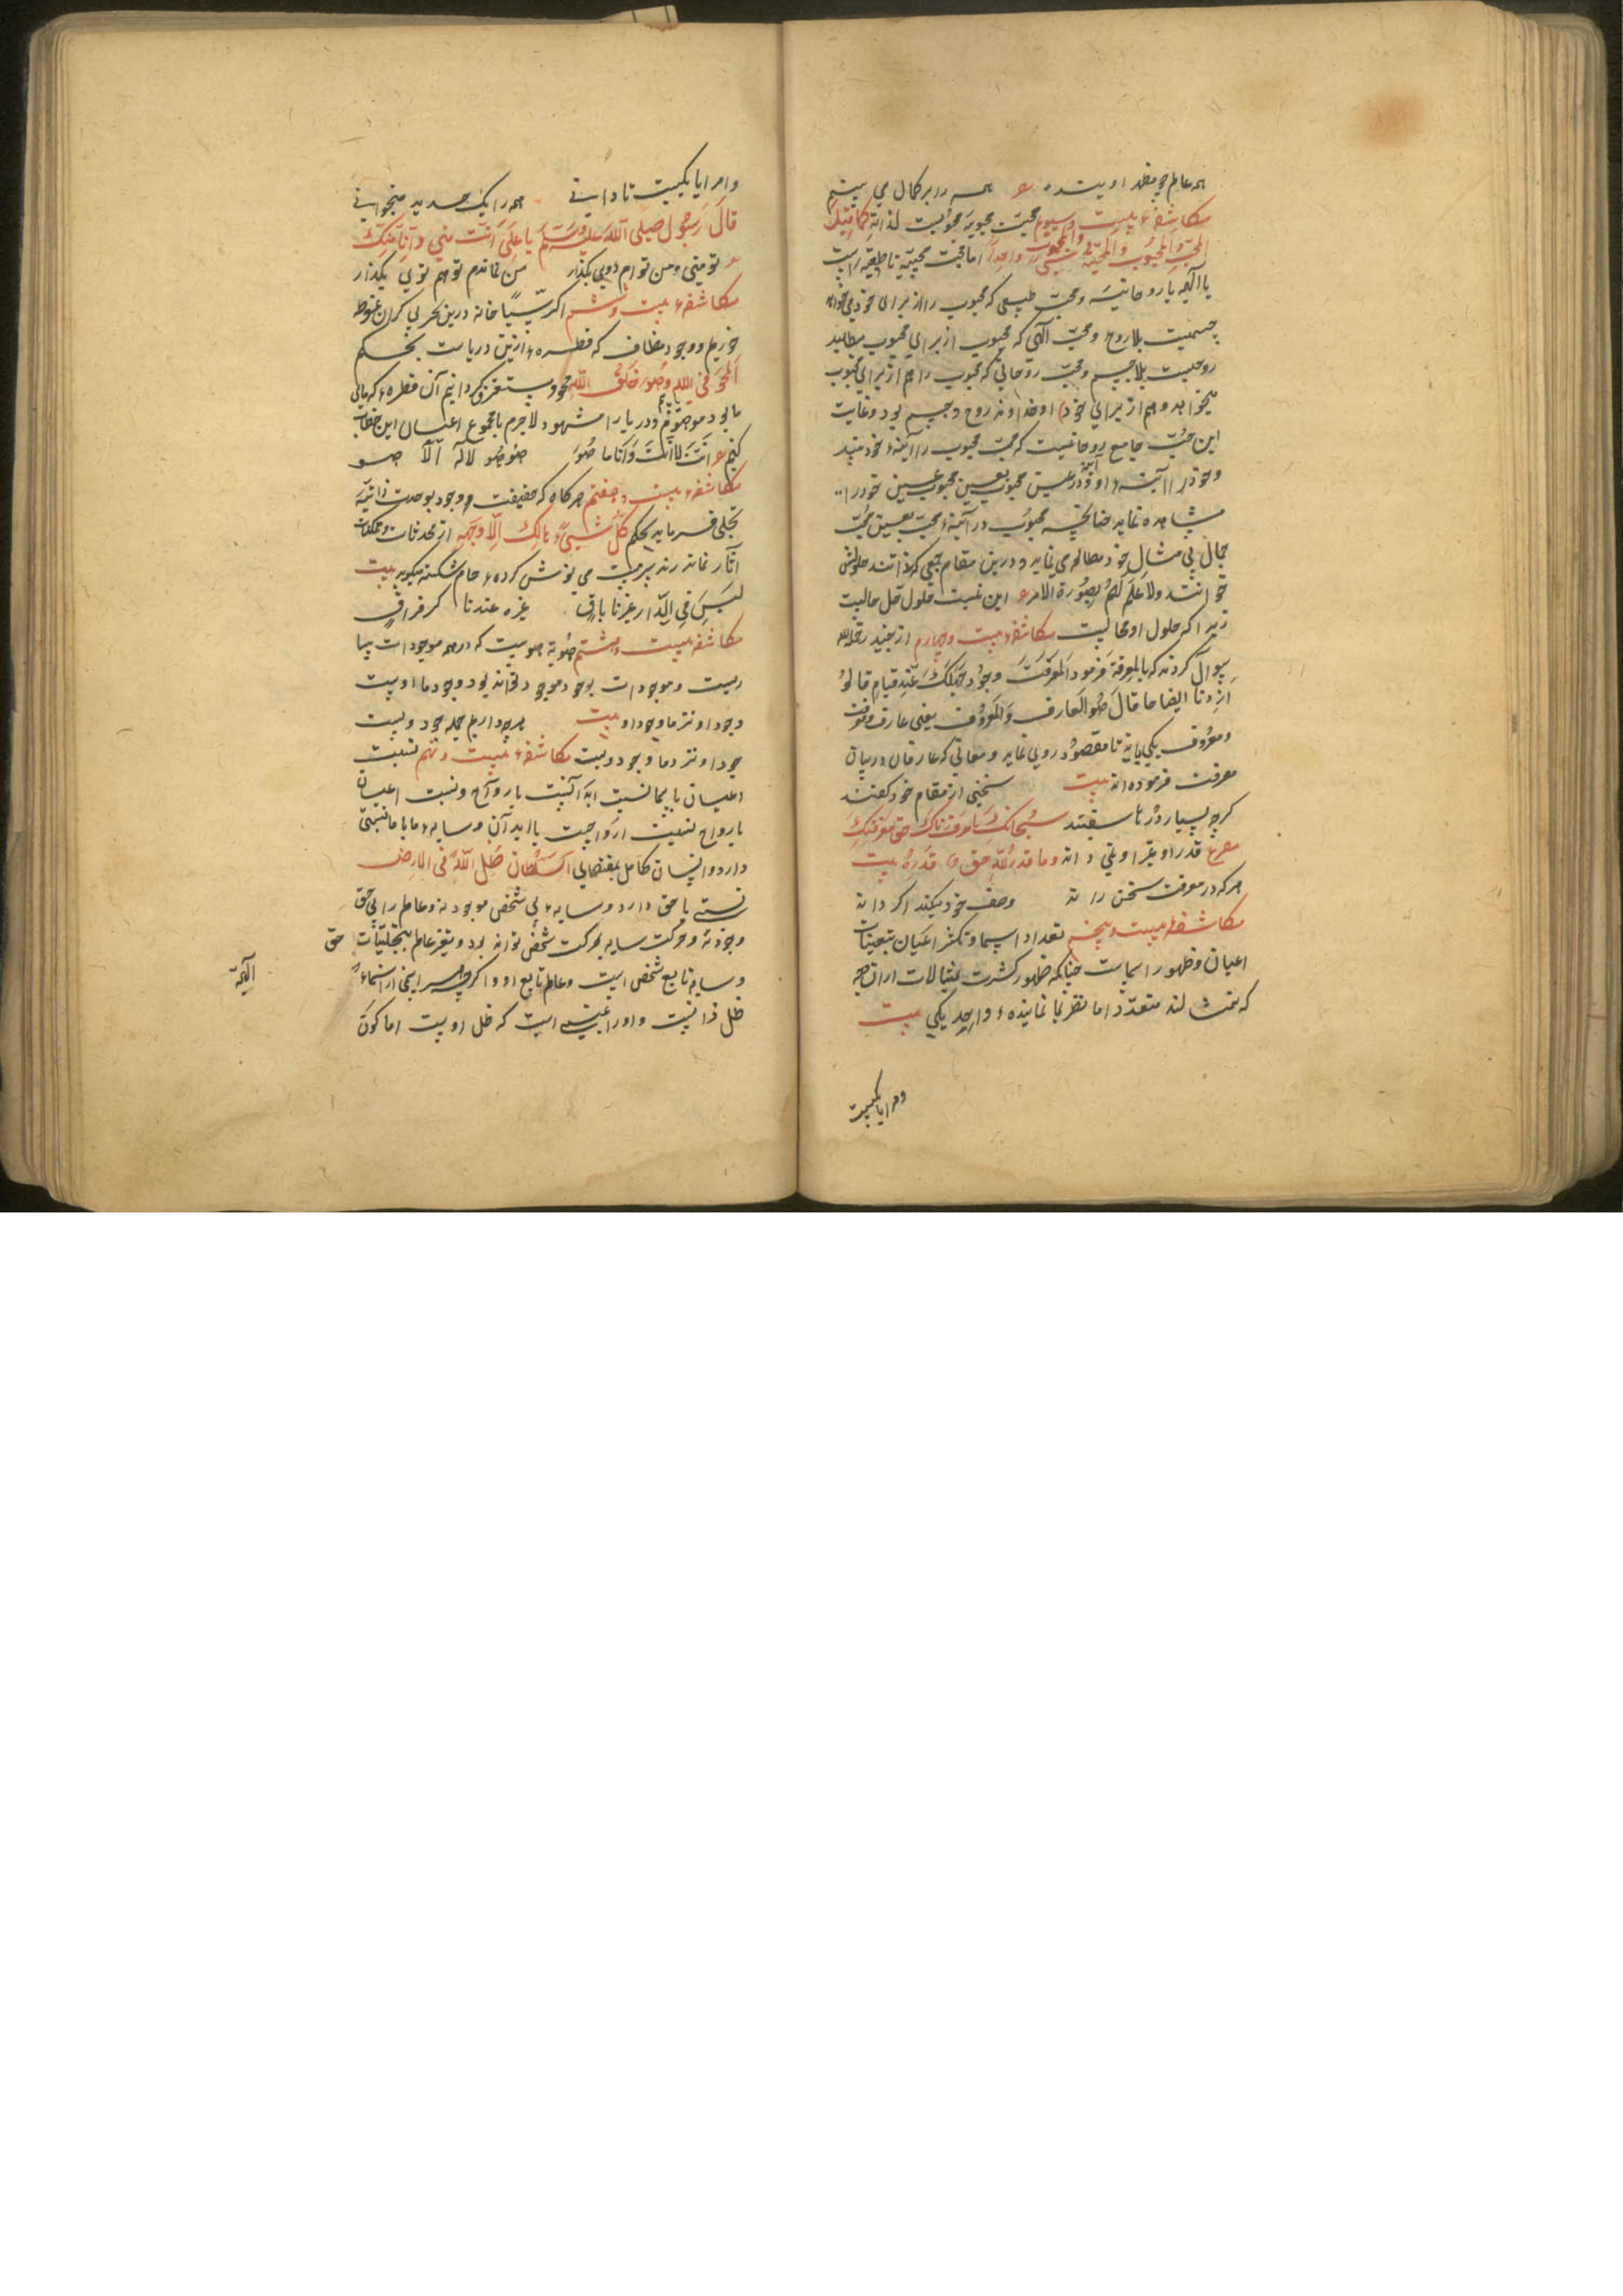 همه عالم چو مظهر اویند ع همه را بر کمال می بینم
مکاشفهٔ بیست و سیوم محبت محبوبیه محبوبیست لذاته کما قیل
المحب والمحبوب والمحبة شیء واحد اما محبت محبیه یا طبیعیه است
یا الهیه یا روحانیه و محب طبیعی که محبوب را از برای خود میخواهد
جسمیت بلا روح و محب الهی که محبوب از برای محبوب میطلبد
روحیست بلا جسم و محب روحانی که محبوب را هم از برای محبوب
میخواهد و هم از برای خود او خداوند روح و جسم بود و غایت
این حب جامع روحانیست که محب محبوب را آینهٔ خود بیند
و خود را آینهٔ او و در عین محبوب بعین محبوب عین خود را
مشاهده نماید چنانچه محبوب در آینهٔ محب بعین محب
جمال بی مثال خود مطالعه می نماید و درین مقام جمعی که دانند حلولش
خوانند ولا علم لهم بصورة الامر ع این نیست حلول حل حالیست
زیرا که حلول او محالیست مکاشفهٔ بیست و چهارم از جنید رحمه الله
سوال کردند که ما المعرفة فرمود المعرفة وجود جهلک عند قیام قالوا
زدنا ایضاحا قال هو العارف والمعروف یعنی عارف و معرفت
و معروف یکی باید تا مقصود روی نماید و معانی که عارفان در بیان
معرفت فرموده اند بیت سخنی از مقام خود گفتند
گرچه بسیار در ناسفتند سبحانک ما عرفناک حق معرفتک
مصرع قدر او غیر او نمی داند وما قدروا الله حق قدره بیت
هر که در معرفت سخن راند وصف خود میکند اگر داند
مکاشفهٔ بیست و پنجم تعداد اسما و تکثر اعیان بتعینات
اعیان و ظهور اسماست چنانکه ظهور کثرت تمثالات
که متعدد اما نظر بما نمایندهٔ واحد یکی بیت
ومرایا یکیست
ومرایا یکیست تا دانی همه را یک حدید میخوانی
قال رسول صلی الله علیه وسلم یا علی انت منی وانا منک
ع تو منی و من تو ام دویی بگذار من نماندم تو هم تویی بگذار
مکاشفهٔ بیست و ششم اگر سیاحانه درین بحر بی کران غوطه
خوریم و وجود مضاف که قطرهٔ ازین دریاست بحکم
المحو فی الله وهو خلق الله محو و مستغرق گردانیم آن قطرهٔ که مایی
ما بود موهوم و دریا را مشهود لاجرم با مجموع اعیان این خطاب
کنیم ع انت لا انت وانا ما هو هو هو لا له الا هو
مکاشفهٔ بیست و هفتم هرگاه که حقیقت وجود بوحدت ذاتیه
تجلی فرماید بحکم کل شیء هالک الا وجهه از محدثات و ممکنات
آثار نماند رند سرمست می نوش کرده و جام شکسته میگوید بیت
لیس فی الدار غیرنا باق غیره عندنا کرقراق
مکاشفه بیست و هشتم هویه هویت که در همه موجودات پیدا
ریست و موجودات بوجود موجد توانند بود وجود ما اوست
وجود او نزد ما وجود او بیت هرچه داریم جمله جود ویست
جود او نزد ما وجود ویست مکاشفهٔ بیست و نهم نسبت
اعیان با اسما نسبت ابدانست با ارواح و نسبت اعیان
با ارواح نسبت ارواحست با ابدان و سایهٔ ما با ما نسبتی
دارد و انسان کامل بمقتضای السلطان ظل الله فی الارض
نسبتی با حق دارد و سایهٔ بی شخص موجود نه و عالم را بی حق
وجود نه و حرکت سایه بحرکت شخص تواند بود و تغیر عالم بتجلیات حق
و سایه تابع شخص است و عالم تابع او و اگرچه اسمی از اسماء الهیه
ظل ذاتست و او را عینی است که ظل اوست اما کون